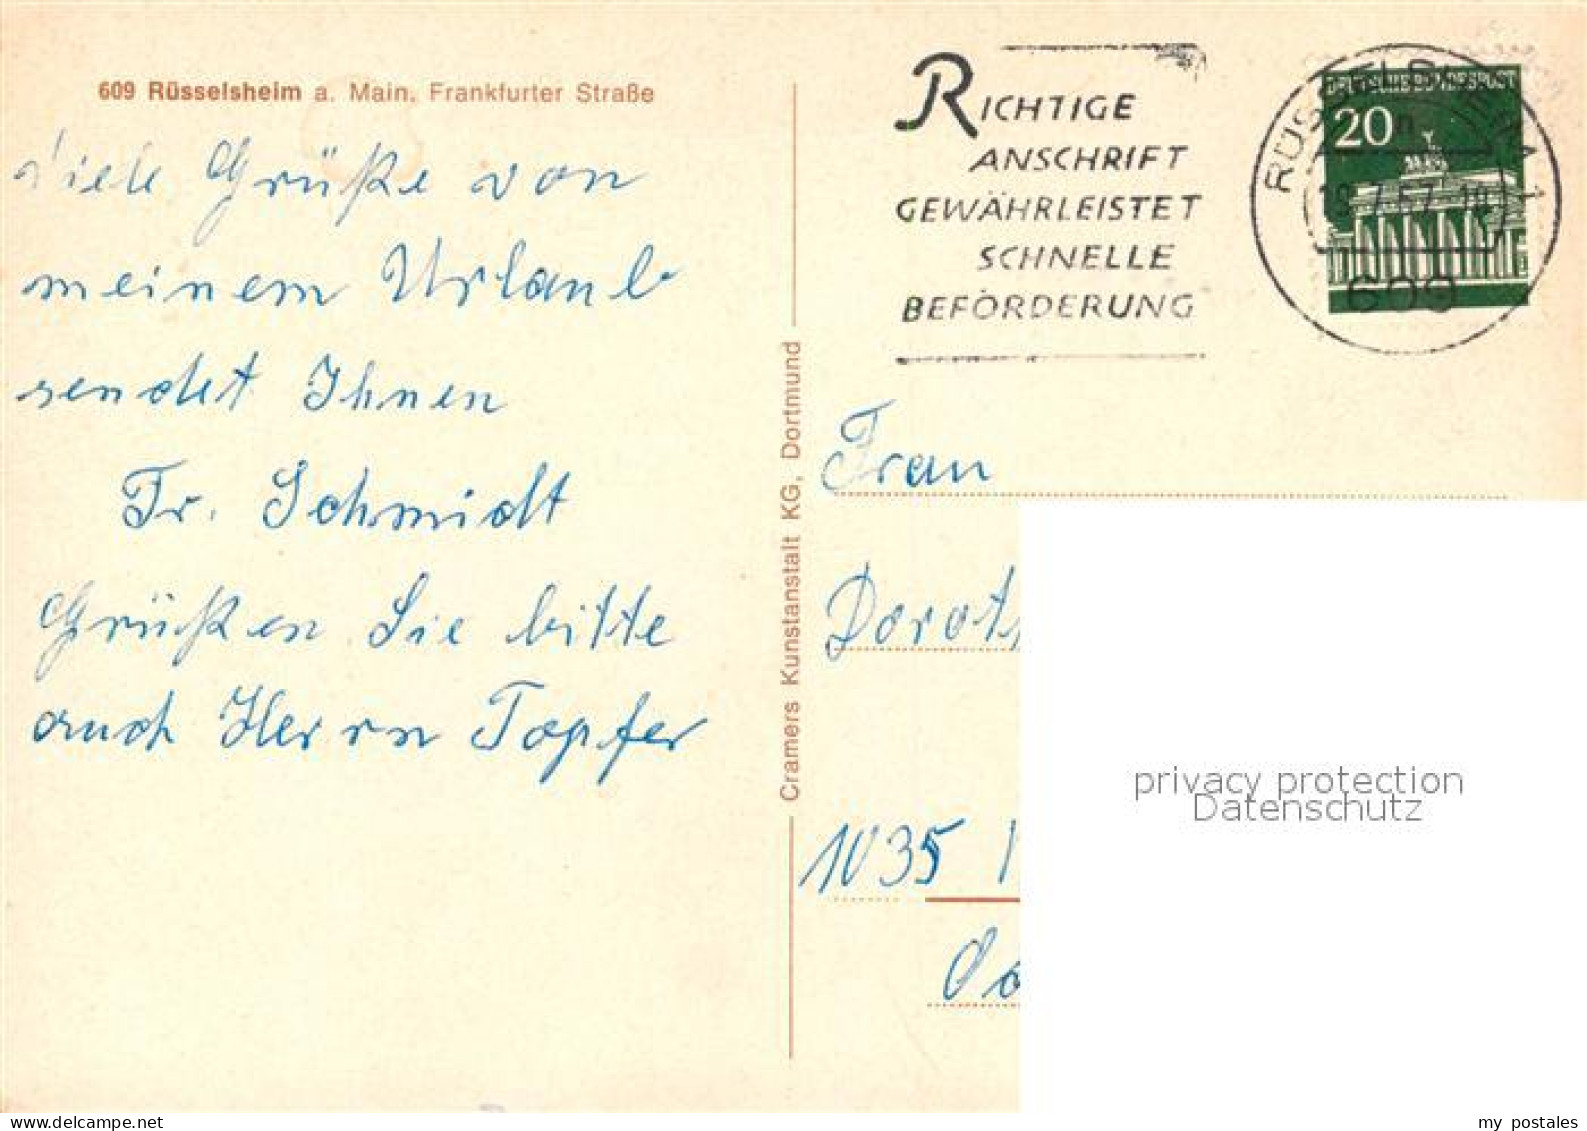 609 Rüsselsheim a. Main. Frankfurter Straße
Viele Grüße von
meinem Urlaub
sendet Ihnen
Fr. Schmidt
Grüßen Sie bitte
auch Herrn Topfer
Cramers Kunstanstalt KG, Dortmund
RICHTIGE
ANSCHRIFT
GEWÄHRLEISTET
SCHNELLE
BEFÖRDERUNG
DEUTSCHE BUNDESPOST
20
RÜSSELSHEIM 1
609
Frau
Dorot
1035
privacy protection
Datenschutz
my postales